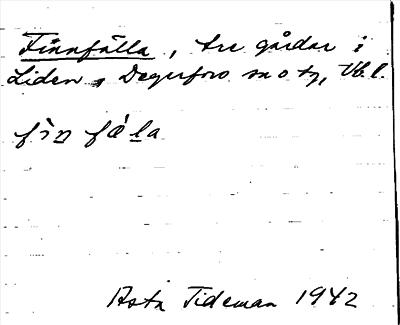 Finnfälla, tre gårdar i
Liden, Degerfors sn o tg, Vb. l.
fìn fǽla
Asta Tideman 1942